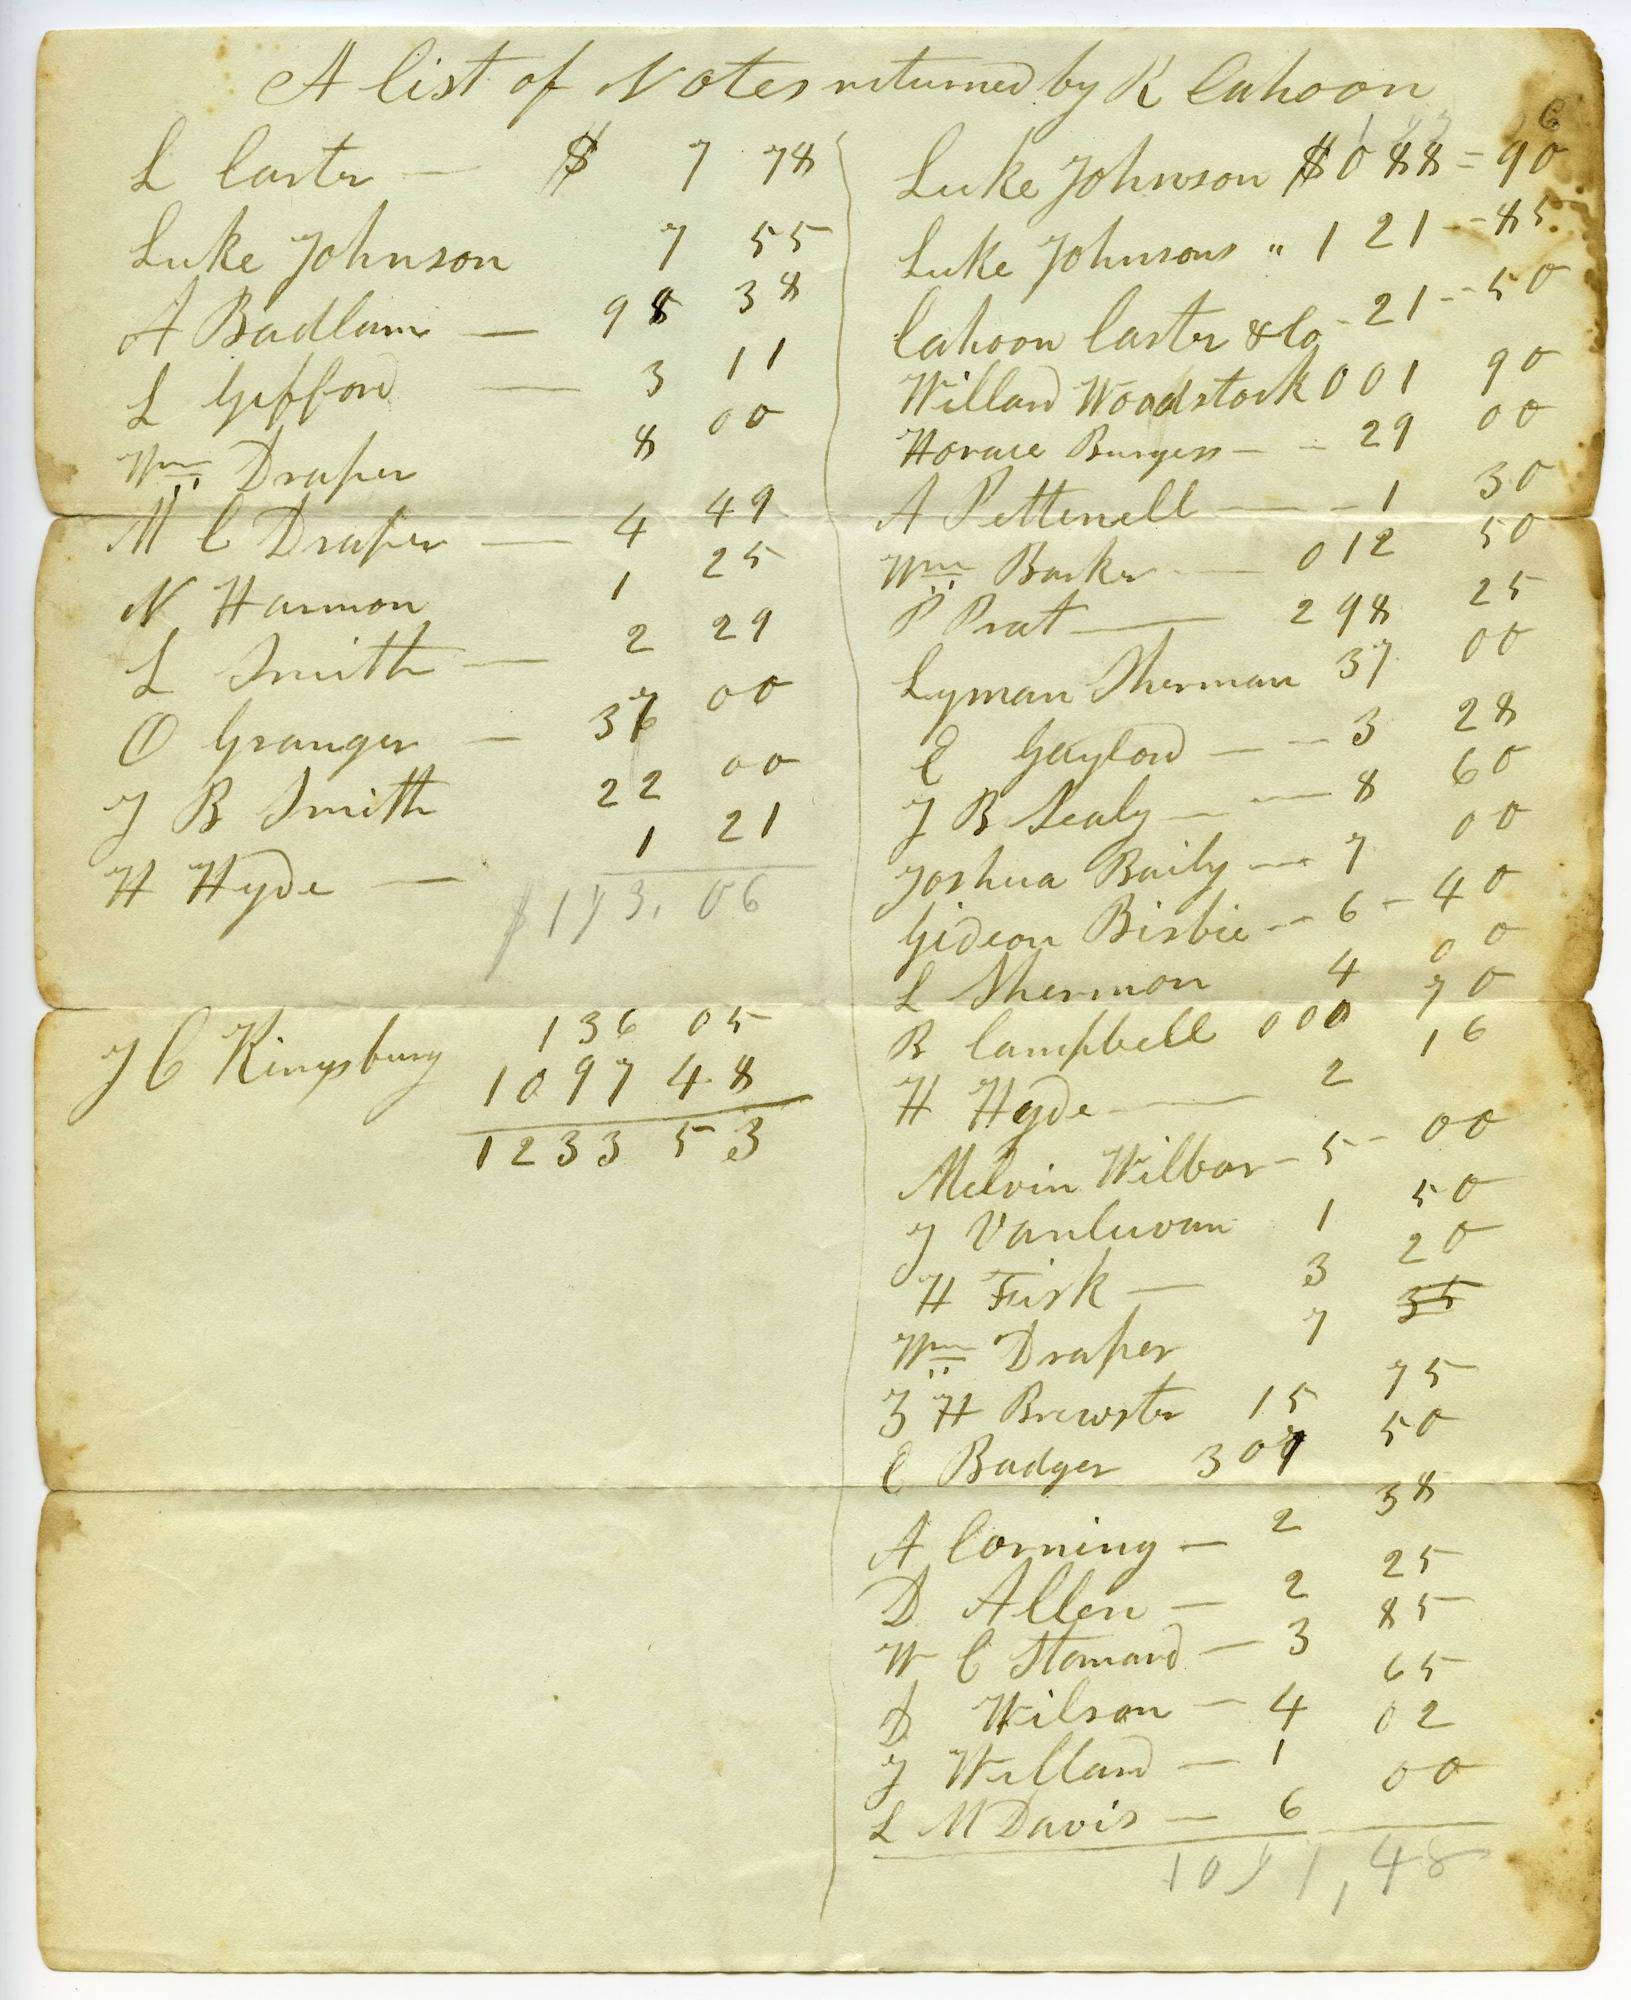 A list of Notes returned by R Cahoon
L Carter — $ 7 78
Luke Johnson 7 55
A Badlam — 98 38
L Gifford — 3 11
Wm Draper 8 00
M C Draper — 4 49
N Harmon 1 25
L Smith — 2 29
O Granger — 37 00
J B Smith 22 00
H Hyde — 1 21
$193.06
J C Kingsbury 136 05
1097 48
1233 53
Luke Johnson $088=90
Luke Johnsons " 121--85
Cahoon Carter & Co - 21--50
Willard Woodstock 001 90
Horace Burgess - - 29 00
A Pettenell — - 1 30
Wm Barker — 012 50
P Prat — 298 25
Lyman Sherman 37 00
E Gaylord — - 3 28
J B Sealy — — 8 60
Joshua Baily — 7 00
Gideon Bisbie — 6 - 40
L Shermon 4 00
R Campbell 000 70
H Hyde — 2 16
Melvin Wilbor - 5 - 00
J Vanluvan 1 50
H Fisk — 3 20
Wm Draper 7 35
Z H Brewster 15 75
E Badger 307 50
A Corning — 2 38
D Allen — 2 25
W C Stanard — 3 85
D Wilson — 4 65
J Willard — 1 02
L M Davis — 6 00
1091,48